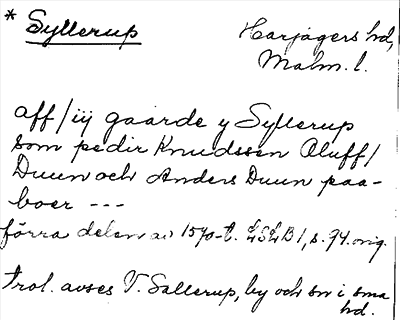 * Syllerup
Harjagers hd,
Malm. l.
aff / iij gaarde y Syllerup
som pedir Knudssen Oluff /
Duun och Anders Duun paa-
boer ---
förra delen av 1570-t. LSLB 1, s. 74. orig.
Trol. avses V. Sallerup, by och sn i sma
hd.